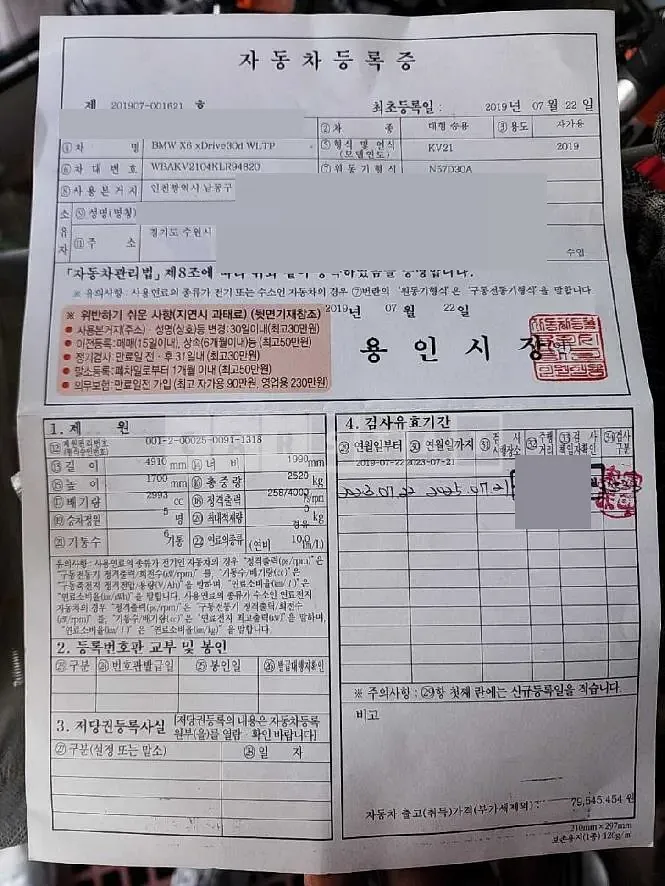 자동차등록증
제 201907-001621 호
최초등록일 : 2019년 07월 22일
②차 종 대형 승용 ③용도 자가용
④차 명 BMW X6 xDrive30d WLTP ⑤형식 및 연식 (모델연도) KV21 2019
⑥차대번호 WBAKV2104KLR94820 ⑦원동기형식 N57D30A
⑧사용본거지 인천광역시 남동구
소유자 ⑨성명(명칭)
⑪주 소 경기도 수원시
수입
「자동차관리법」 제8조에
※ 유의사항: 사용연료의 종류가 전기 또는 수소인 자동차의 경우 ⑦번란의 '원동기형식'은 '구동전동기형식'을 말합니다
2019년 07월 22일
※ 위반하기 쉬운 사항(지연시 과태료) (뒷면기재참조)
• 사용본거지(주소)· 성명(상호)등 변경: 30일이내(최고30만원)
• 이전등록: 매매(15일이내), 상속(6개월이내)등 (최고50만원)
• 정기검사: 만료일 전·후 31일내 (최고30만원)
• 말소등록: 폐차일로부터 1개월 이내 (최고50만원)
• 의무보험: 만료일전 가입 (최고 자가용 90만원, 영업용 230만원)
용인시장
1. 제 원
⑫제원관리번호 (형식승인번호) 001-2-00025-0091-1318
⑬길 이 4910mm ⑭너 비 1990mm
⑮높 이 1700mm ⑯총중량 2520kg
⑰배기량 2993cc ⑱정격출력 258/4000
⑲승차정원 5명 ⑳최대적재량 0kg
㉑기통수 6기통 ㉒연료의종류 경유 (연비 10.0
유의사항: 사용연료의 종류가 전기인 자동차의 경우 "정격출력(ps/rpm)"은
"구동전동기 정격출력/최전수(㎾/rpm)" 를, "기통수/배기량(㏄)"은
"구동축전지 정격전압/용량(V/Ah)"을 말하며 "연료소비율(㎞/ℓ)"은
"연료소비율(㎞/㎾h)"을 말합니다. 사용연료의 종류가 수소인 연료전지
자동차의 경우 "정격출력(ps/rpm)"은 "구동전동기 정격출력/최전수
(㎾/rpm)"를, "기통수/배기량(㏄)"은 "연료전지 최고출력(㎾)"을 말하며,
"연료소비율(㎞/ℓ)"은 "연료소비율(㎞/kg)"을 말합니다.
2. 등록번호판 교부 및 봉인
㉓구분 ㉔번호판발급일 ㉕봉인일 ㉖발급대행자확인
3. 저당권등록사실 [저당권등록의 내용은 자동차등록
원부(을)를 열람·확인 바랍니다]
㉗구분(설정 또는 말소) ㉘일 자
4. 검사유효기간
㉙연월일부터 ㉚연월일까지 ㉛검 사 시행장소 ㉜주행거리 ㉝검 사 책임자확인 ㉞검사구분
2019-07-22 2023-07-21
2023.07.22 2025.07.21
※ 주의사항 : ㉙항 첫째 란에는 신규등록일을 적습니다
비고
자동차 출고(취득)가격(부가세제외): 79,545,454 원
210mm×297mm
보존용지(1종) 120g/㎡